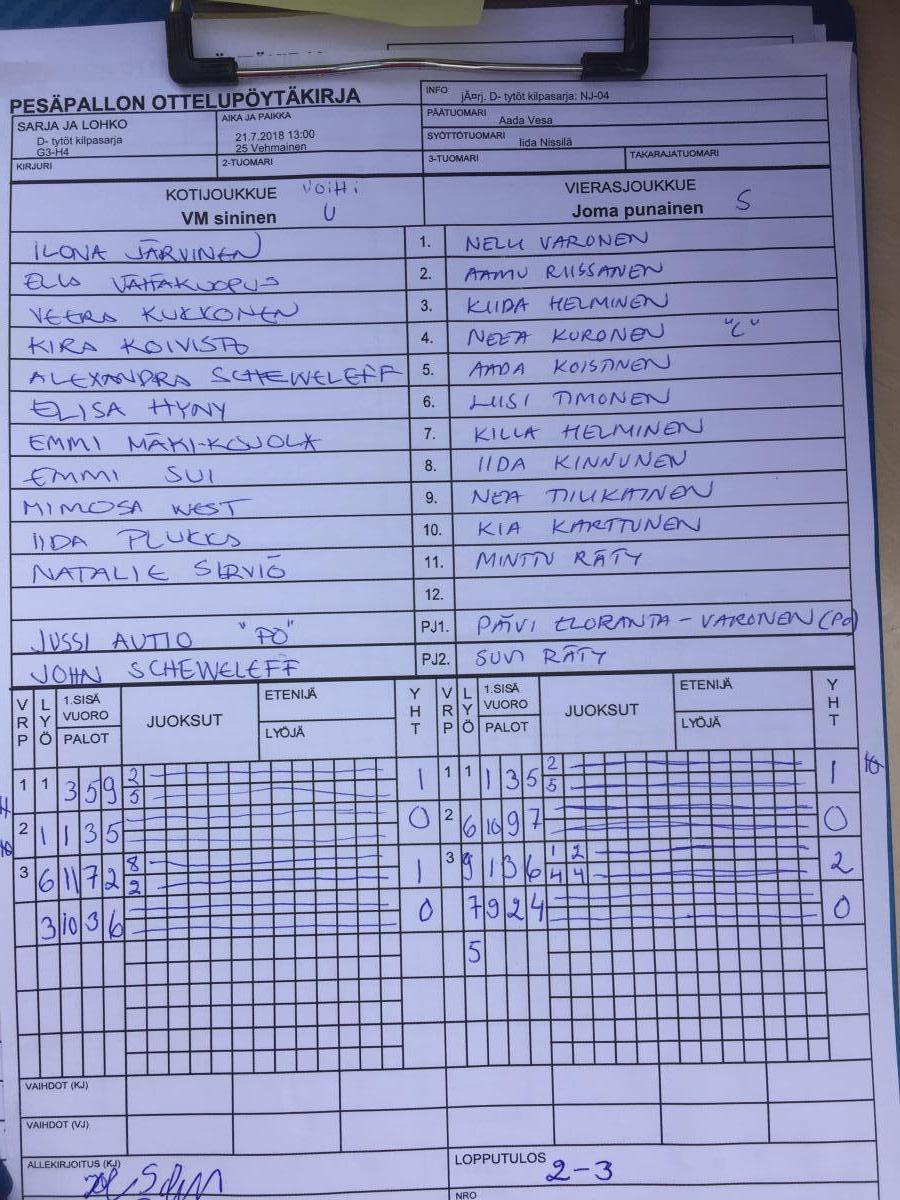 PESÄPALLON OTTELUPÖYTÄKIRJA
INFO jÄ¤rj. D- tytöt kilpasarja: NJ-04
PÄÄTUOMARI Aada Vesa
SARJA JA LOHKO
D- tytöt kilpasarja
G3-H4
AIKA JA PAIKKA
21.7.2018 13:00
25 Vehmainen
SYÖTTÖTUOMARI Iida Nissilä
KIRJURI 2-TUOMARI 3-TUOMARI TAKARAJATUOMARI
KOTIJOUKKUE VOITTI VIERASJOUKKUE
VM sininen U Joma punainen S
ILONA JÄRVINEN 1. NELLI VARONEN
ELLA VÄHÄKUOPUS 2. AAMU RIISSANEN
VEERA KUKKONEN 3. KIIDA HELMINEN
KIRA KOIVISTO 4. NEEA KURONEN "C"
ALEXANDRA SCHEWELEFF 5. AADA KOISTINEN
ELISA HYNY 6. LIISI TIMONEN
EMMI MÄKI-KOJOLA 7. KILLA HELMINEN
EMMI SUI 8. IIDA KINNUNEN
MIMOSA WEST 9. NEA TIUKAINEN
IIDA PLUKKA 10. KIA KARTTUNEN
NATALIE SERVIÖ 11. MINTTU RÄTY
12.
JUSSI AUTIO "PÖ" PJ1. PÄIVI ELORANTA-VARONEN (PÖ)
JOHN SCHEWELEFF PJ2. SUVI RÄTY
VRP LYÖ 1.SISÄ VUORO PALOT JUOKSUT ETENIJÄ LYÖJÄ YHT VRP LYÖ 1.SISÄ VUORO PALOT JUOKSUT ETENIJÄ LYÖJÄ YHT
1 1 3 5 9 2 5 1 1 1 1 3 5 2 5 1
2 1 1 3 5 0 2 6 10 9 7 0
3 6 11 7 2 8 2 1 3 9 1 3 6 1 2 4 4 2
3 10 3 6 0 7 9 2 4 0
5
VAIHDOT (KJ)
VAIHDOT (VJ)
ALLEKIRJOITUS (KJ) LOPPUTULOS 2-3
NRO